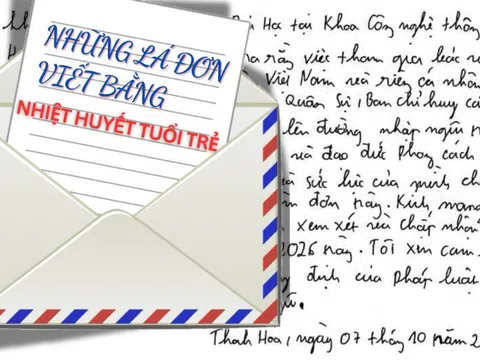 NHỮNG LÁ ĐƠN
VIẾT BẰNG
NHIỆT HUYẾT TUỔI TRẺ
Học tại Khoa Công nghệ thông
ra rằng việc tham gia
Việt Nam và riêng cá nhân
Quân Sự, Ban chỉ huy
lên đường nhập ngũ
và đạo đức phong cách
và sức lực của mình
đơn này. Kính mong
xem xét và chấp nhận
2026 này. Tôi xin cam
định của pháp luật
Thanh Hoá, ngày 07 tháng 10 năm 2